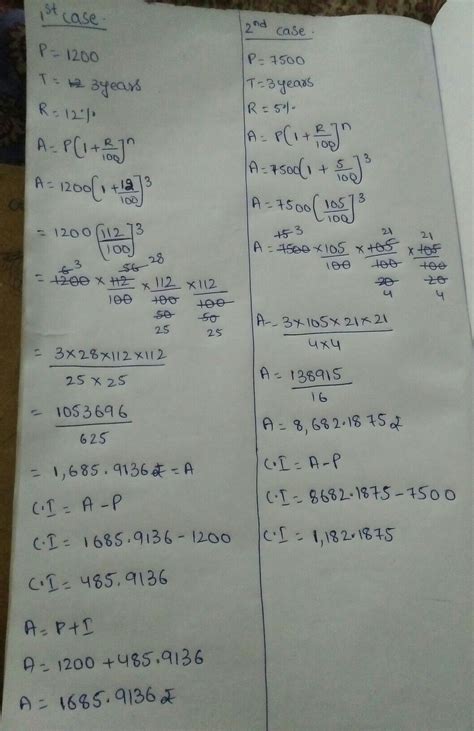 1st case.
P = 1200
T = 12 3years
R = 12%
A = P[1 + R/100]^n
A = 1200[1 + 12/100]^3
= 1200[112/100]^3
6 3 56 28
= 1200 × 112/100 × 112/100 × 112/100
50 50
25 25
= 3×28×112×112 / 25×25
= 1053696 / 625
= 1,685.9136 = A
C.I = A - P
C.I = 1685.9136 - 1200
C.I = 485.9136
A = P + I
A = 1200 + 485.9136
A = 1685.9136
2nd case.
P = 7500
T = 3years
R = 5%
A = P[1 + R/100]^n
A = 7500[1 + 5/100]^3
A = 7500[105/100]^3
15 3 21 21
A = 7500 × 105/100 × 105/100 × 105/100
20 20
4 4
A = 3×105×21×21 / 4×4
A = 138915 / 16
A = 8,682.1875
C.I = A - P
C.I = 8682.1875 - 7500
C.I = 1,182.1875